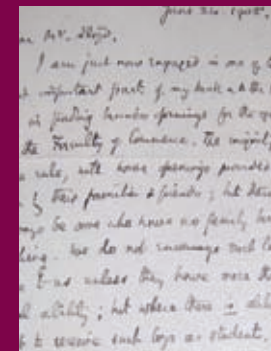 June 2nd. 1905.
Mr. Lloyd,
I am just now engaged in one of t
important parts of my work
finding business openings for the
the Faculty of Commerce. The majority
rule, with home openings provided
by their families & friends; but there
be some who have no family
We do not encourage such
unless they have more th
ability; but where there is
to receive such boys as students,